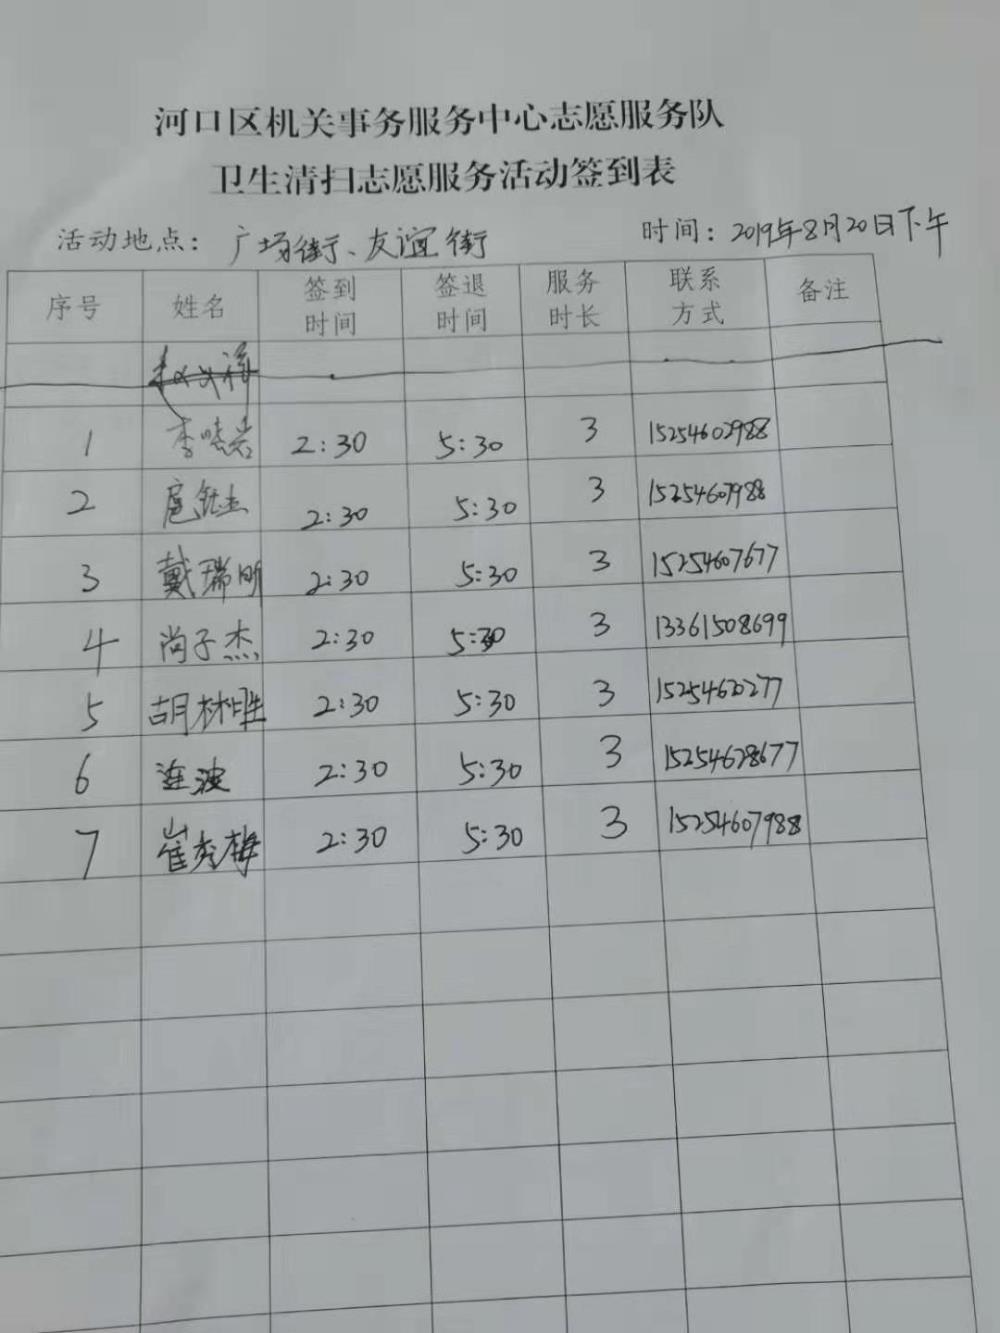 河口区机关事务服务中心志愿服务队
卫生清扫志愿服务活动签到表
活动地点：广场街、友谊街 时间：2019年8月20日下午
序号 姓名 签到时间 签退时间 服务时长 联系方式 备注
1 李晓岩 2:30 5:30 3 15254602988
2 2:30 5:30 3 15254607988
3 戴瑞明 2:30 5:30 3 15254607677
4 尚子杰 2:30 5:30 3 13361508699
5 胡林胜 2:30 5:30 3 1525460277
6 连波 2:30 5:30 3 15254628677
7 崔秀梅 2:30 5:30 3 15254607988